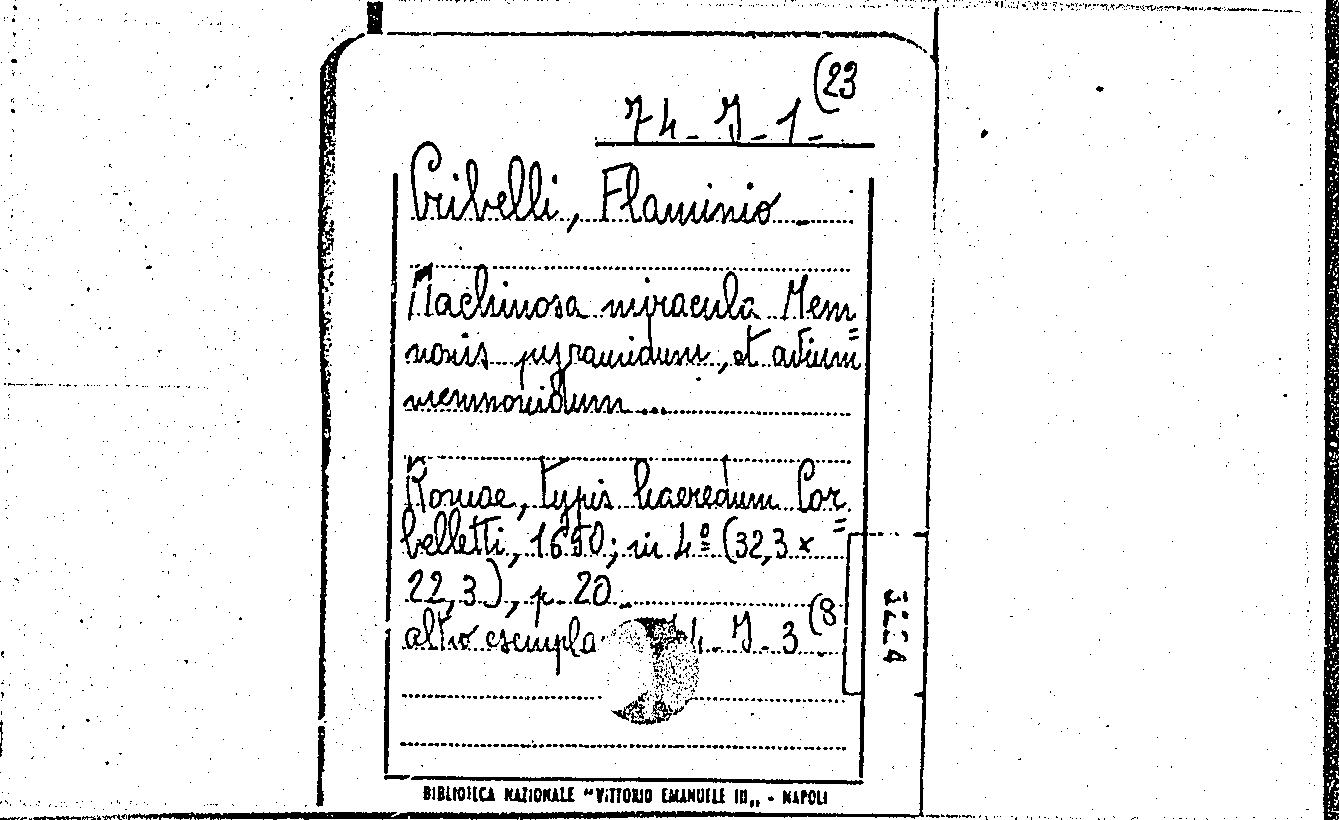 74-J-1-(23
Cribelli, Flaminio -
Machinosa miracula Mem=
nonis pyramidum, et avium
memnonidum...
Romae, typis haeredum Cor=
belletti, 1650; in 4º (32,3 x
22,3), p. 20 -
altro esempla 4-J-3 (8
BIBLIOTECA NAZIONALE "VITTORIO EMANUELE III„ - NAPOLI